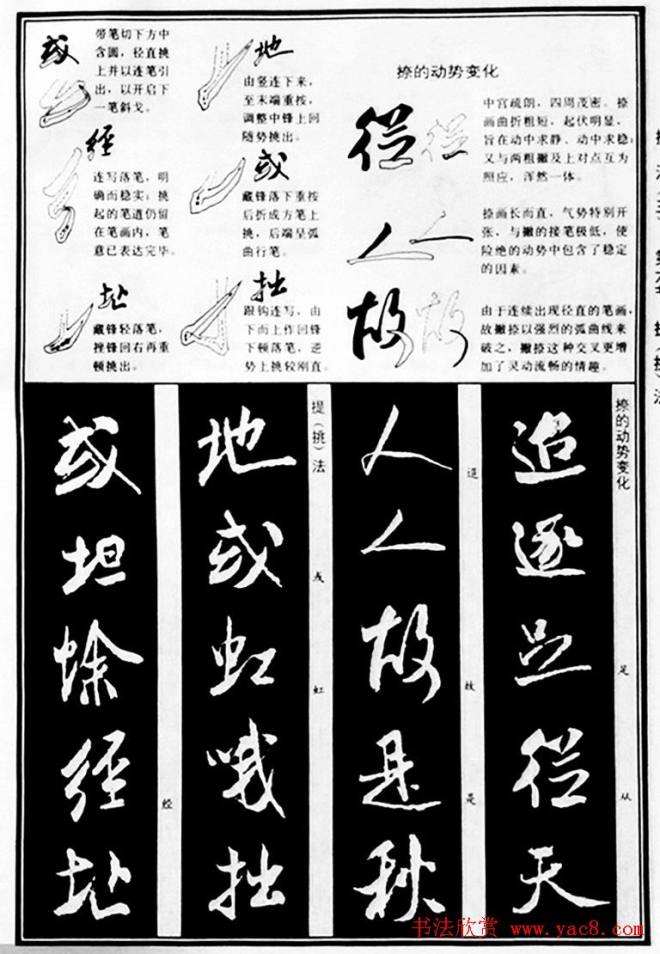 或
带笔切下方中
含圆，径直挑
上并以连笔引
出，以开启下
一笔斜戈。
經
连写落笔，明
确而稳实；挑
起的笔道仍留
在笔画内，笔
意已表达完毕。
址
藏锋轻落笔，
挫锋回右再重
顿挑出。
地
由竖连下来，
至末端重按，
调整中锋上回
随势挑出。
或
藏锋落下重按
后折成方笔上
挑，后端呈弧
曲行笔。
拙
跟钩连写，由
下而上作回锋
下顿落笔，逆
势上挑较刚直。
捺的动势变化
從
中宫疏朗，四周茂密。捺
画曲折粗短，起伏明显，
旨在动中求静、动中求稳；
又与两粗撇及上对点互为
照应，浑然一体。
人
捺画长而直，气势特别开
张，与撇的接笔极低，使
险绝的动势中包含了稳定
的因素。
故
由于连续出现径直的笔画，
故撇捺以强烈的弧曲线来
破之，撇捺这种交叉更增
加了灵动流畅的情趣。
捺的动势变化
足 从
追逐足從天
故 是
人人故是秋
提（挑）法
或 虹
地或虹哦拙
经
或坦蜍徑址
书法欣赏 www.yac8.com